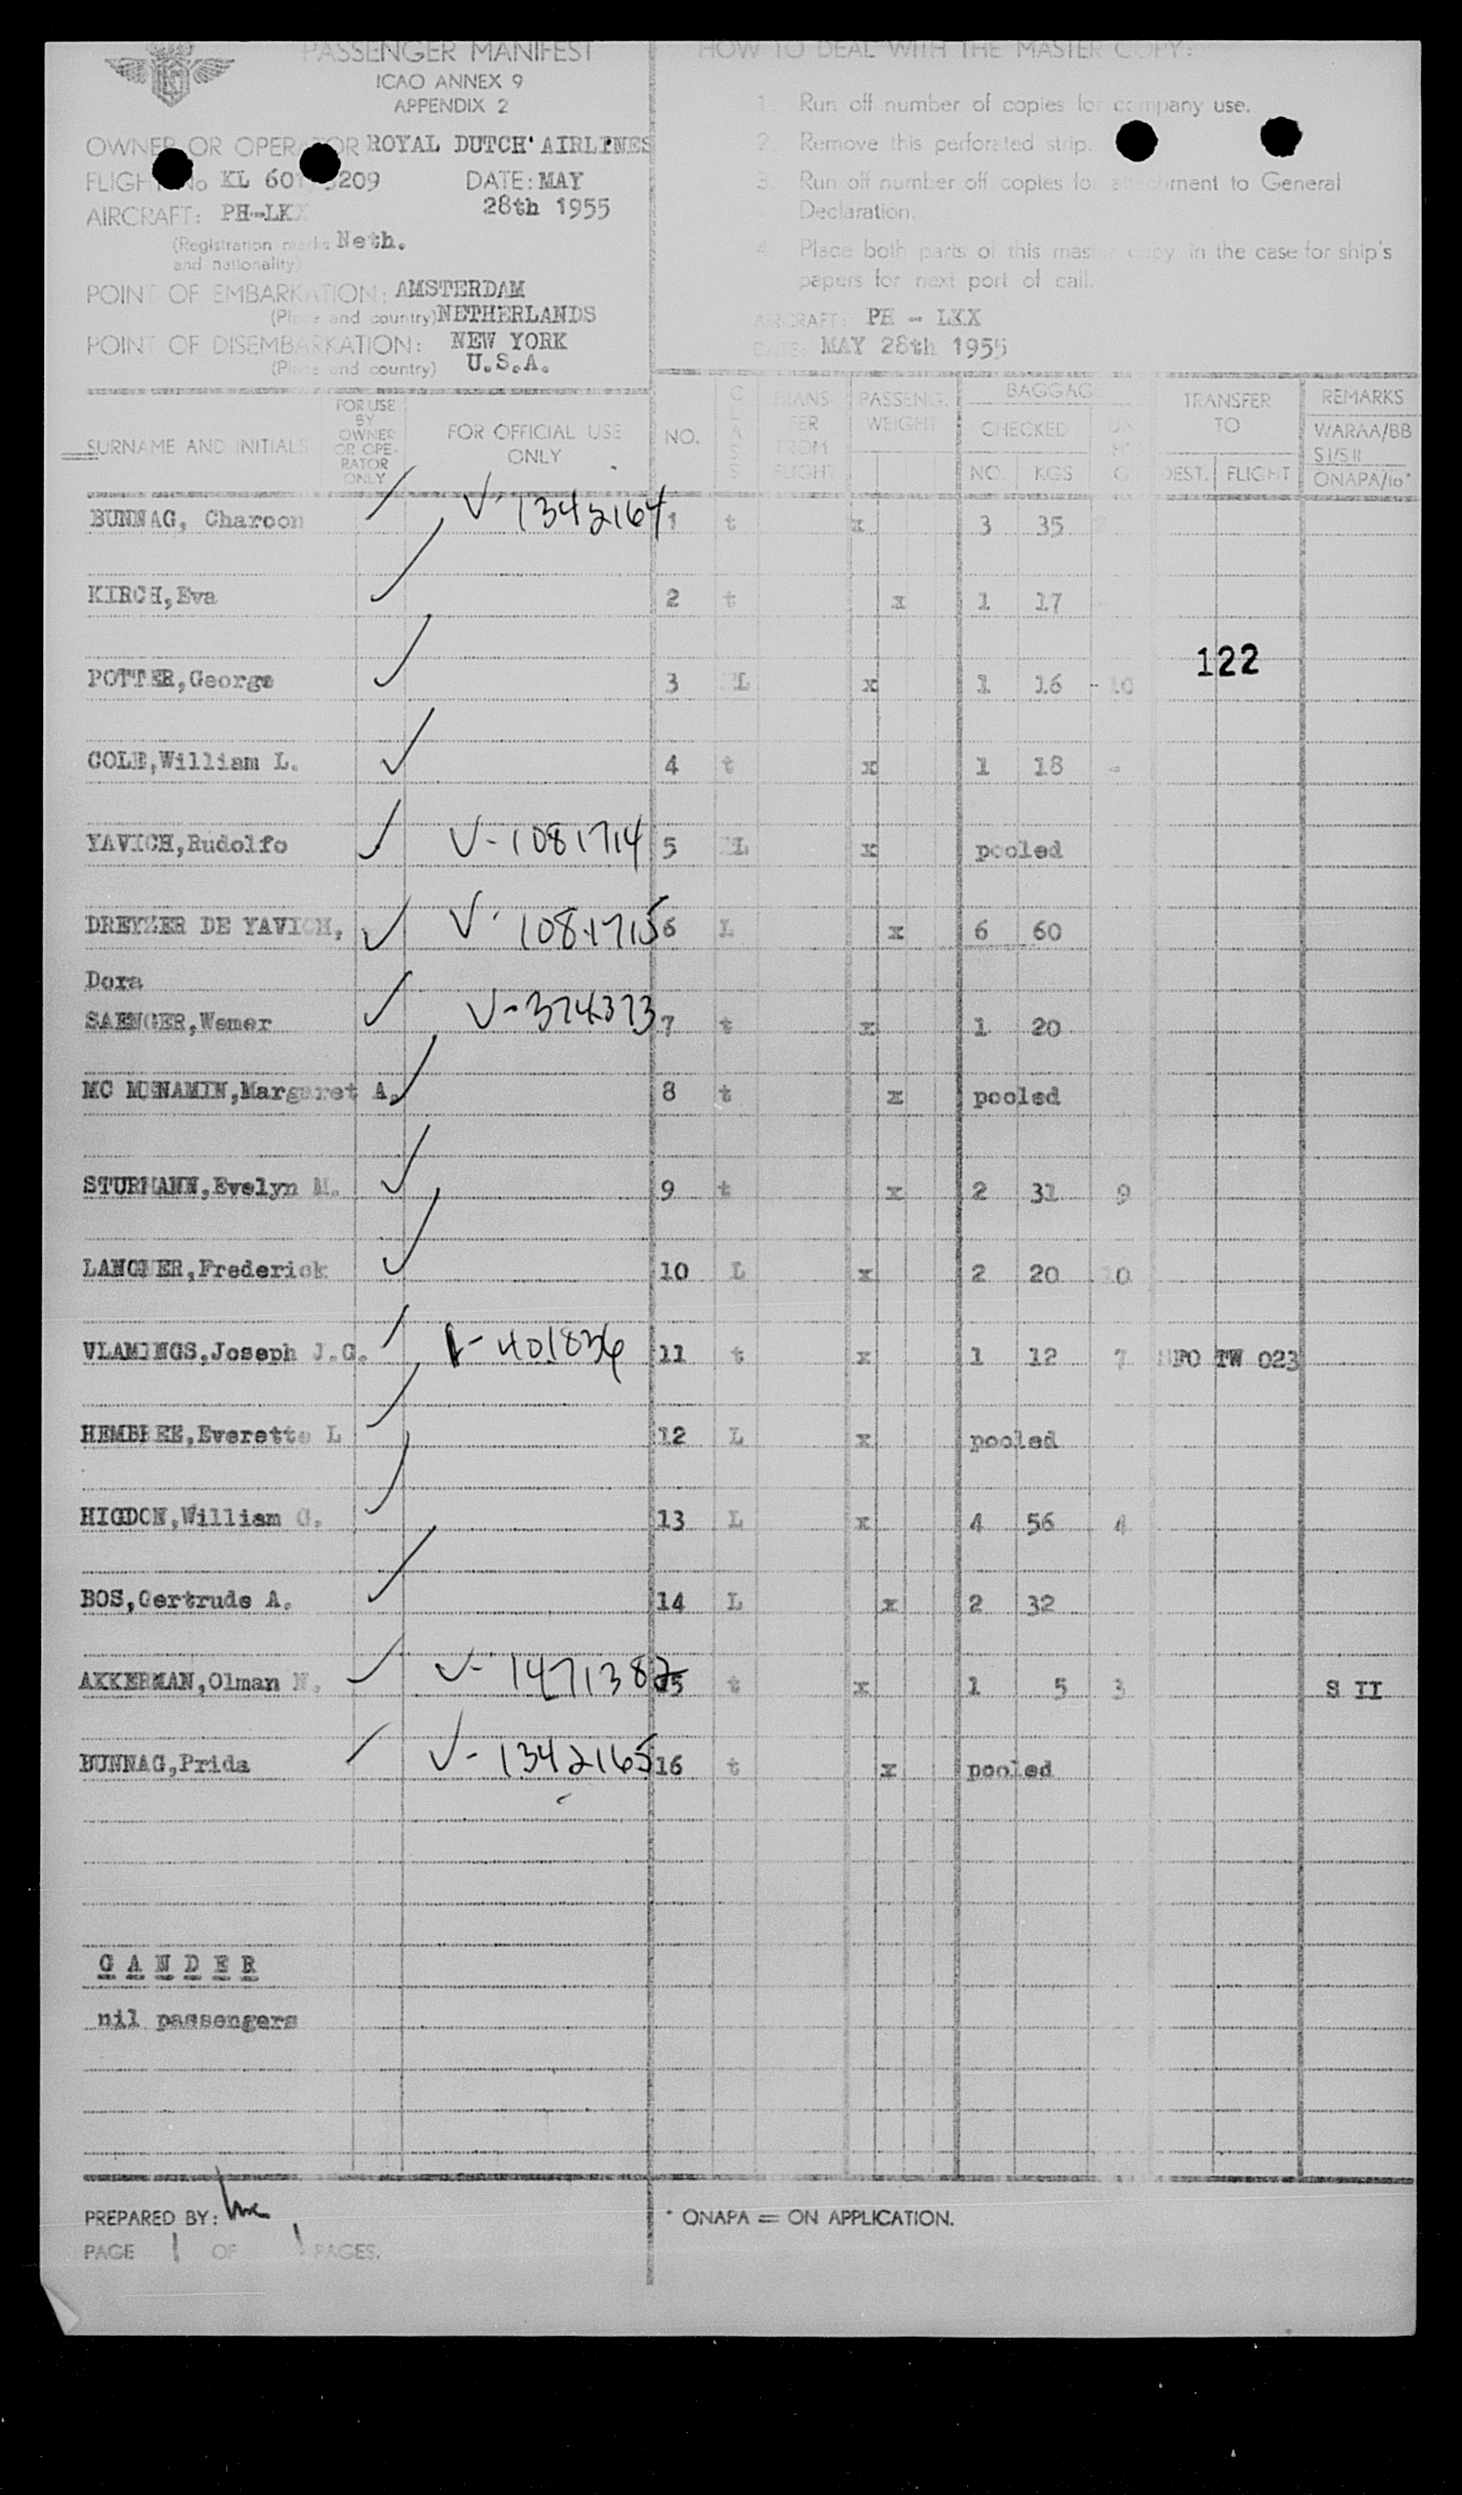 PASSENGER MANIFEST
ICAO ANNEX 9
APPENDIX 2
OWNER OR OPERATOR ROYAL DUTCH AIRLINES
FLIGHT No KL 60 209 DATE: MAY
28th 1955
AIRCRAFT: PH-LKX
(Registration marks Neth.
and nationality)
POINT OF EMBARKATION: AMSTERDAM
(Place and country) NETHERLANDS
POINT OF DISEMBARKATION: NEW YORK
(Place and country) U.S.A.
HOW TO DEAL WITH THE MASTER COPY:
1. Run off number of copies for company use.
2. Remove this perforated strip.
3. Run off number off copies for attachment to General
Declaration.
4. Place both parts of this master copy in the case for ship's
papers for next port of call.
AIRCRAFT: PH - LKX
DATE: MAY 28th 1955
SURNAME AND INITIALS
FOR USE
BY
OWNER
OR OPE-
RATOR
ONLY
FOR OFFICIAL USE
ONLY
NO.
CLASS
TRANS-
FER
FROM
FLIGHT
PASSENG.
WEIGHT
BAGGAG
CHECKED
NO. KGS
TRANSFER
TO
DEST. FLIGHT
REMARKS
WARAA/BB
S I/S II
ONAPA/io*
BUNNAG, Charoon V-1342164 1 t x 3 35
KIRCH, Eva 2 t x 1 17
122
POTTER, George 3 L x 1 16 - 10
COLE, William L. 4 t x 1 18 -
YAVICH, Rudolfo V-1081714 5 L x pooled
DREYZER DE YAVICH, V-1081715 6 L x 6 60
Dora
SAENGER, Wemer V-374373 7 t x 1 20
MC MENAMIN, Margaret A. 8 t x pooled
STURMANN, Evelyn M. 9 t x 2 31 9
LANGNER, Frederick 10 L x 2 20 10
VLAMINGS, Joseph J.G. V-401836 11 t x 1 12 7 SFO TW 023
HEMBREE, Everette L 12 L x pooled
HIGDON, William G. 13 L x 4 56 4
BOS, Gertrude A. 14 L x 2 32
AKKERMAN, Olman N. V-1471387 15 t x 1 5 3 S II
BUNNAG, Prida V-1342165 16 t x pooled
GANDER
nil passengers
PREPARED BY:
* ONAPA = ON APPLICATION.
PAGE 1 OF 1 PAGES.